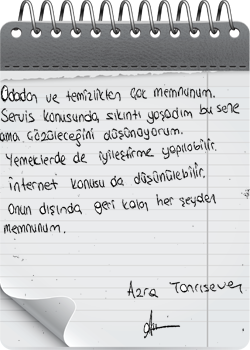 Odadan ve temizlikten çok memnunum.
Servis konusunda sıkıntı yaşadım bu sene
ama çözüleceğini düşünüyorum.
Yemeklerde de iyileştirme yapılabilir.
internet konusu da düşünülebilir.
Onun dışında geri kalan her şeyden
memnunum.
Azra Tanrısever